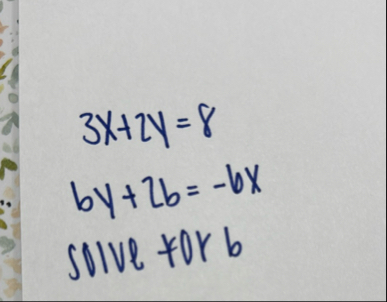 3x+2y=8
by+2b=-bx
solve for b